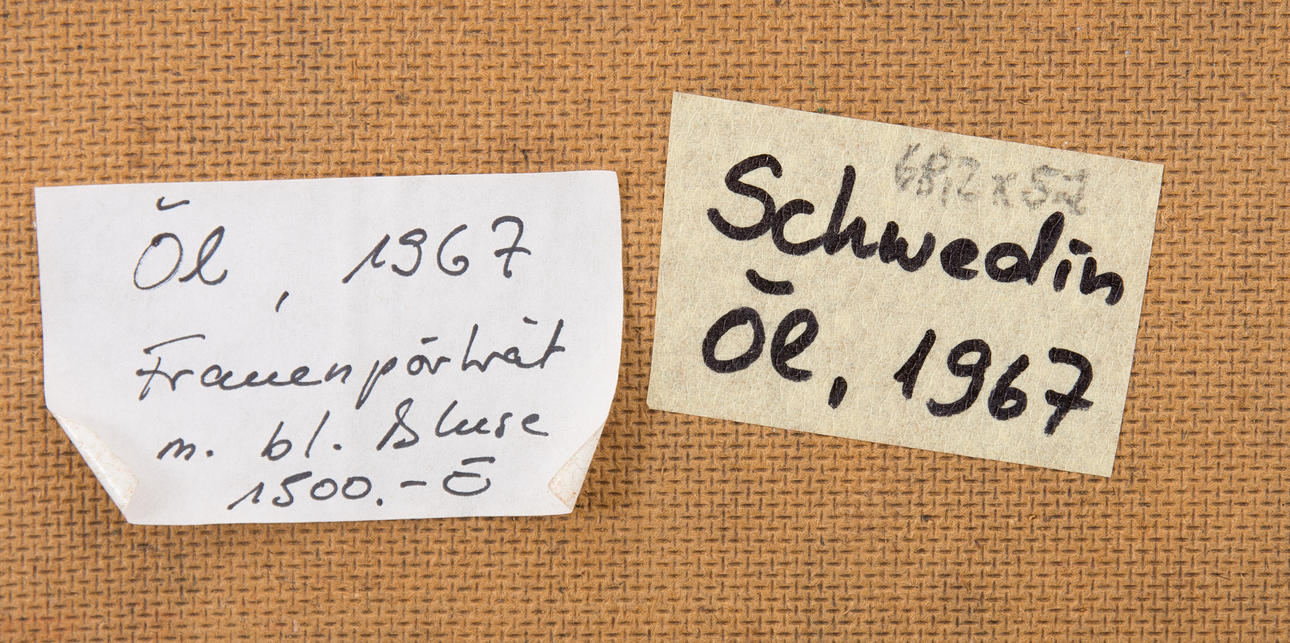 Öl, 1967
Frauenporträt
m. bl. Bluse
1500.- €
68,2 x 52
Schwedin
Öl, 1967